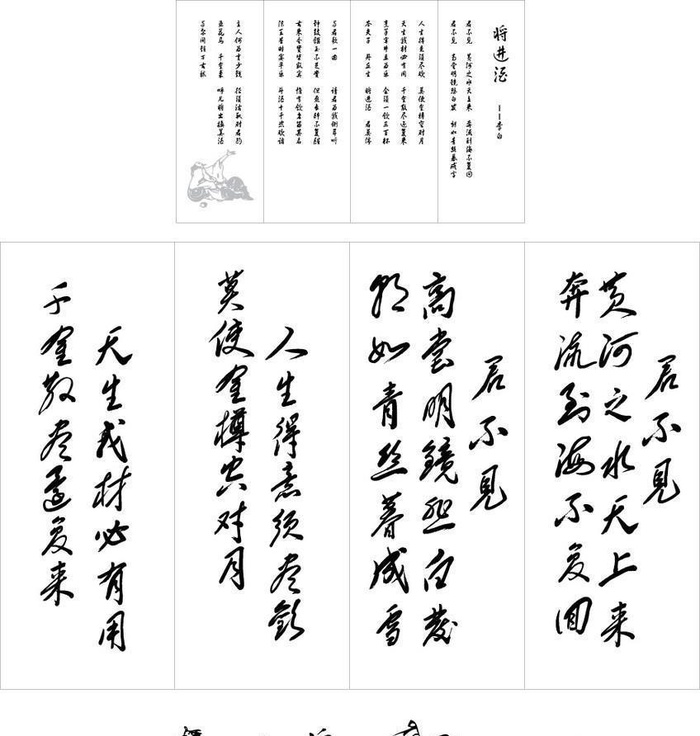 将进酒
——李白
君不见 黄河之水天上来 奔流到海不复回
君不见 高堂明镜悲白发 朝如青丝暮成雪
人生得意须尽欢 莫使金樽空对月
天生我材必有用 千金散尽还复来
烹羊宰牛且为乐 会须一饮三百杯
岑夫子 丹丘生 将进酒 君莫停
与君歌一曲 请君为我倾耳听
钟鼓馔玉不足贵 但愿长醉不复醒
古来圣贤皆寂寞 惟有饮者留其名
陈王昔时宴平乐 斗酒十千恣欢谑
主人何为言少钱 径须沽取对君酌
五花马 千金裘 呼儿将出换美酒
与尔同销万古愁
君不見
黄河之水天上来
奔流到海不复回
君不見
高堂明鏡悲白发
朝如青丝暮成雪
人生得意须尽欢
莫使金樽空对月
天生我材必有用
千金散尽还复来